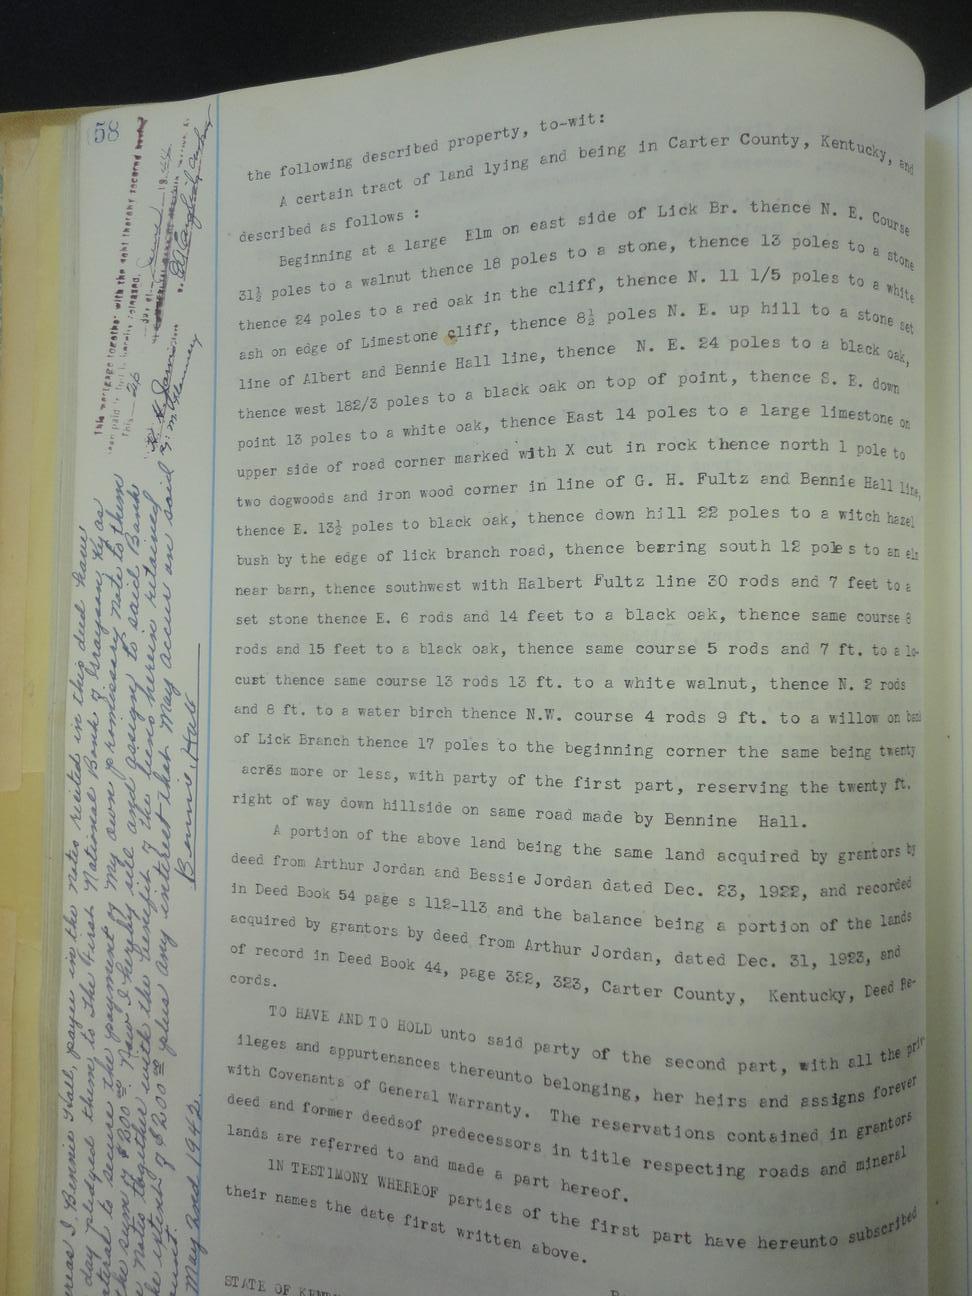 58
This mortgage together with the debt thereby secured
the following described property, to-wit:
A certain tract of land lying and being in Carter County, Kentucky, and
described as follows :
Beginning at a large Elm on east side of Lick Br. thence N. E. Course
31½ poles to a walnut thence 18 poles to a stone, thence 13 poles to a stone
thence 24 poles to a red oak in the cliff, thence N. 11 1/5 poles to a white
ash on edge of Limestone cliff, thence 8½ poles N. E. up hill to a stone set
line of Albert and Bennie Hall line, thence N. E. 24 poles to a black oak,
thence west 182/3 poles to a black oak on top of point, thence S. E. down
point 13 poles to a white oak, thence East 14 poles to a large limestone on
upper side of road corner marked with X cut in rock thence north 1 pole to
two dogwoods and iron wood corner in line of G. H. Fultz and Bennie Hall line,
thence E. 13½ poles to black oak, thence down hill 22 poles to a witch hazel
bush by the edge of lick branch road, thence bearing south 12 poles to an elm
near barn, thence southwest with Halbert Fultz line 30 rods and 7 feet to a
set stone thence E. 6 rods and 14 feet to a black oak, thence same course 8
rods and 15 feet to a black oak, thence same course 5 rods and 7 ft. to a lo-
cust thence same course 13 rods 13 ft. to a white walnut, thence N. 2 rods
and 8 ft. to a water birch thence N.W. course 4 rods 9 ft. to a willow on
of Lick Branch thence 17 poles to the beginning corner the same being twenty
acres more or less, with party of the first part, reserving the twenty ft.
right of way down hillside on same road made by Bennine Hall.
A portion of the above land being the same land acquired by grantors by
deed from Arthur Jordan and Bessie Jordan dated Dec. 23, 1922, and recorded
in Deed Book 54 page s 112-113 and the balance being a portion of the lands
acquired by grantors by deed from Arthur Jordan, dated Dec. 31, 1923, and
of record in Deed Book 44, page 322, 323, Carter County, Kentucky, Deed Re-
cords.
TO HAVE AND TO HOLD unto said party of the second part, with all the priv
ileges and appurtenances thereunto belonging, her heirs and assigns forever
with Covenants of General Warranty. The reservations contained in grantors
deed and former deedsof predecessors in title respecting roads and mineral
lands are referred to and made a part hereof.
IN TESTIMONY WHEREOF parties of the first part have hereunto subscribed
their names the date first written above.
STATE OF
I, Bennie Hall, payee in the notes recited in this deed have
day pledged them to the First National Bank of Grayson, Ky as
to secure the payment of my own promissory note to them
the sum of $300.00 Now I hereby sell and assign to said Bank
notes together with the benefit of the liens herein retained
the extent of $200.00 plus any interest that may accrue on said
May 2nd 1942. Bennie Hall